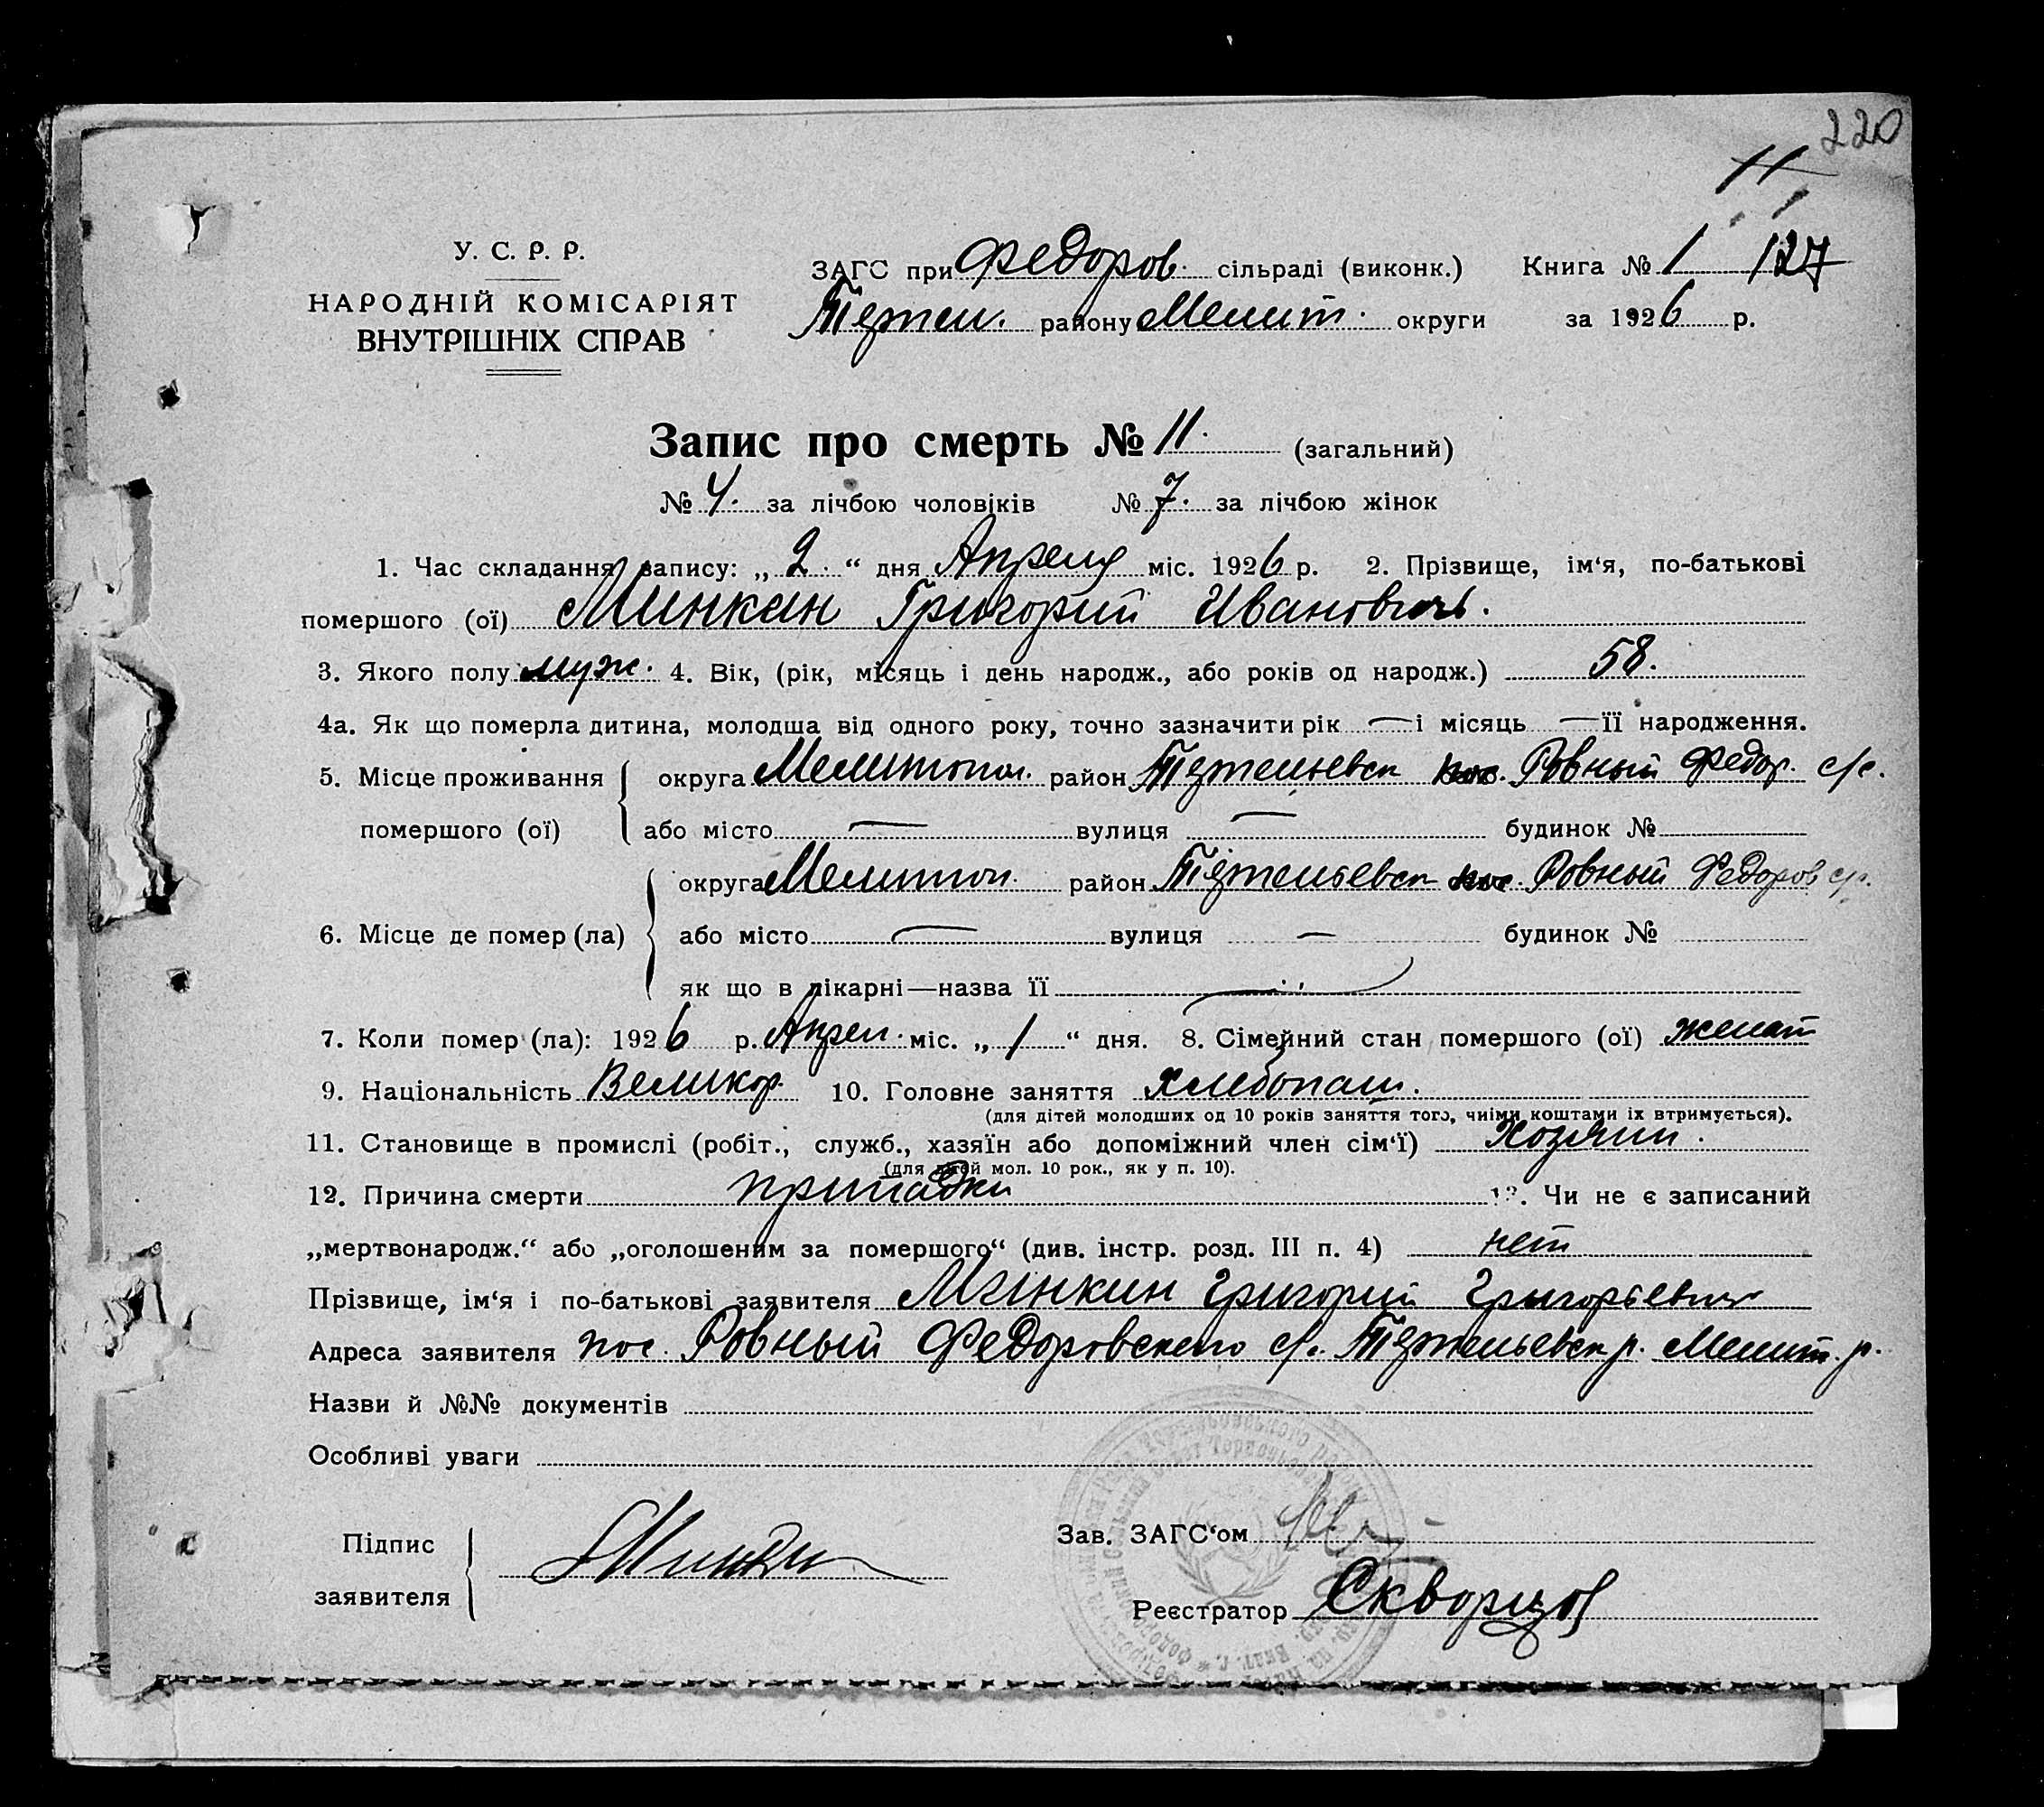 220
11
У. С. Р. Р.
НАРОДНІЙ КОМІСАРІЯТ
ВНУТРІШНІХ СПРАВ
ЗАГС при Федоров. сільраді (виконк.) Книга № 1 127
району Мелит. округи за 1926 р.
Запис про смерть № 11. (загальний)
№ 4. за лічбою чоловіків № 7. за лічбою жінок
1. Час складання запису: „ 2. “ дня Апреля міс. 1926 р. 2. Прізвище, ім‘я, по-батькові
помершого (ої) Минкин Григорий Иванович.
3. Якого полу муж. 4. Вік, (рік, місяць і день народж., або років од народж.) 58.
4а. Як що померла дитина, молодша від одного року, точно зазначити рік — і місяць — її народження.
5. Місце проживання округа Мелитопол. район пос. Ровный Федор. с/с.
помершого (ої) або місто — вулиця — будинок №
округа Мелитоп. район пос. Ровный Федоров с/с.
6. Місце де помер (ла) або місто — вулиця — будинок №
як що в лікарні—назва її —
7. Коли помер (ла): 1926 р. Апрел. міс. „ 1 “ дня. 8. Сімейний стан помершого (ої) женат
9. Національність Великор. 10. Головне заняття Хлебопаш.
(для дітей молодших од 10 років заняття того, чиїми коштами їх втримується).
11. Становище в промислі (робіт., служб., хазяїн або допоміжний член сім‘ї) Хозяин.
(для дітей мол. 10 рок., як у п. 10).
12. Причина смерти припадки 13. Чи не є записаний
„мертвонародж.“ або „оголошеним за помершого“ (див. інстр. розд. III п. 4) нет
Прізвище, ім‘я і по-батькові заявителя Минкин Григорий Григорьевич
Адреса заявителя пос. Ровный Федоровского с/с. Мелит. р.
Назви й №№ документів
Особливі уваги
Підпис
заявителя
Зав. ЗАГС‘ом
Реєстратор Скворцов